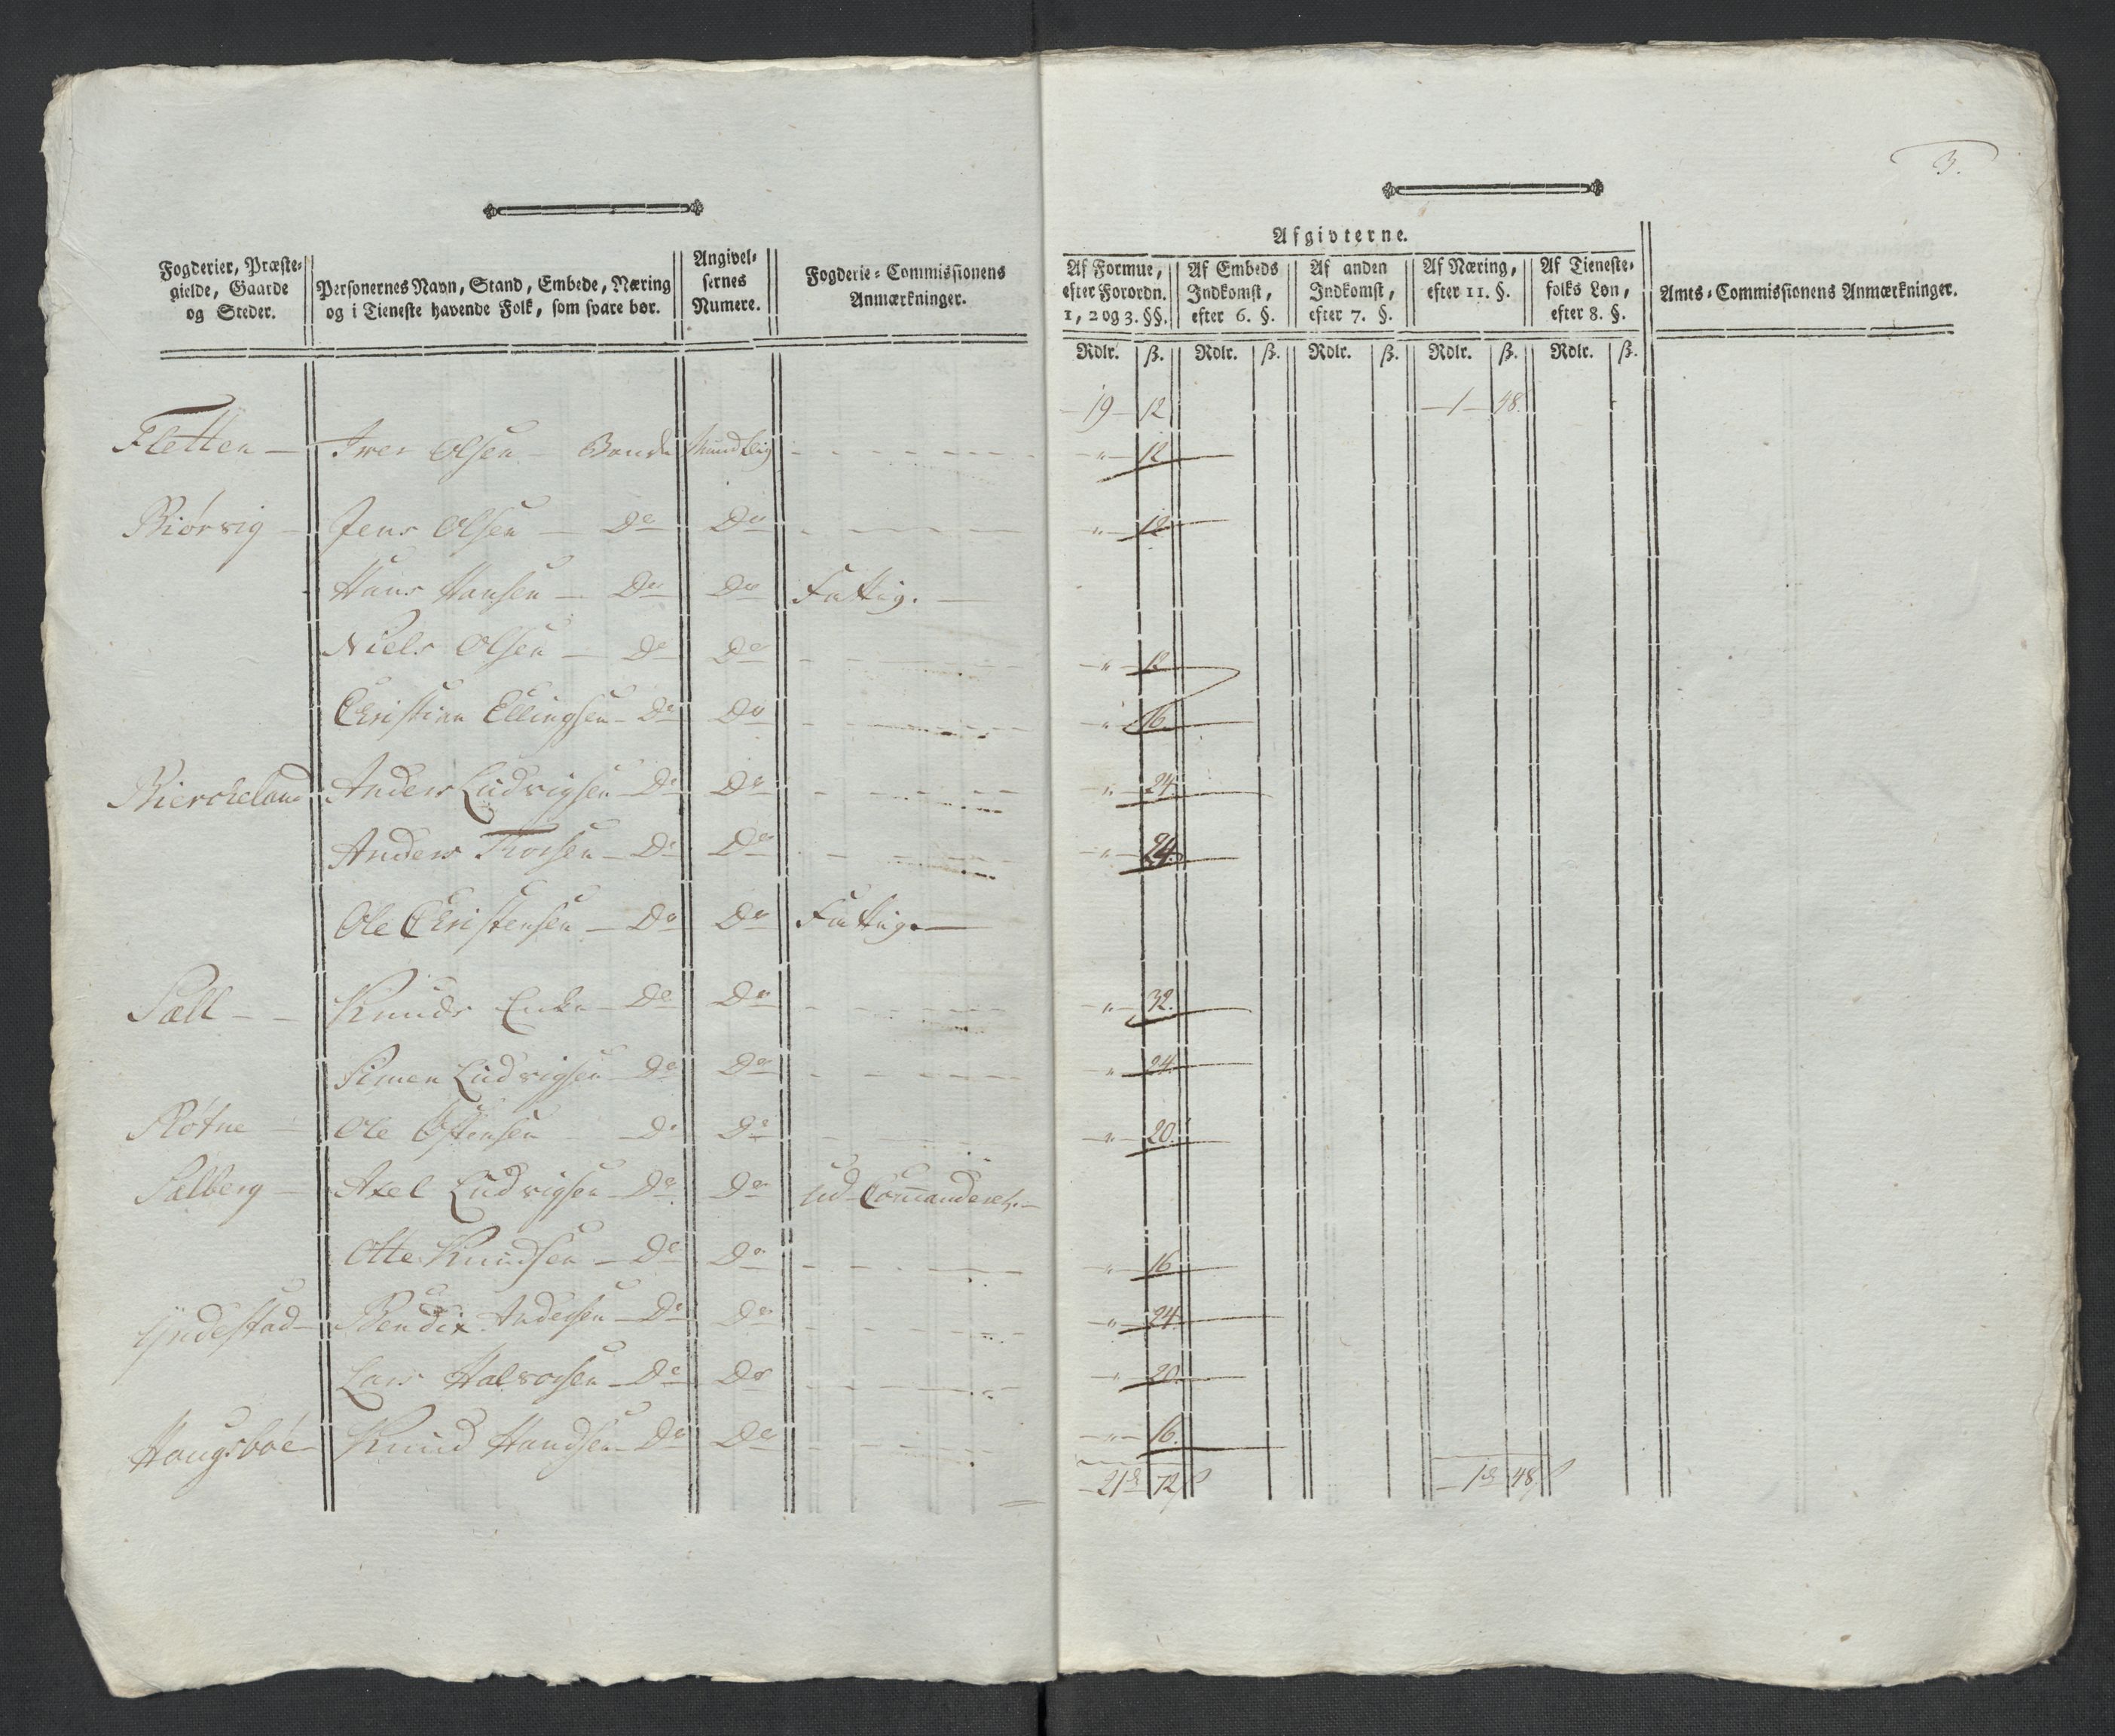 3.
Afgivterne.
Fogderier, Præste-
gielde, Gaarde
og Steder.
Personernes Navn, Stand, Embede, Næring
og i Tieneste havende Folk, som svare bør.
Angivel-
sernes
Numere.
Fogderie-Commissionens
Anmærkninger.
Af Formue,
efter Forordn.
1, 2 og 3. §§.
Af Embeds
Indkomst,
efter 6. §.
Af anden
Indkomst,
efter 7. §.
Af Næring,
efter 11. §.
Af Tieneste-
folks Løn,
efter 8. §.
Amts-Commissionens Anmærkninger.
Rdlr. ß. Rdlr. ß. Rdlr. ß. Rdlr. ß. Rdlr. ß.
19 12 1 48.
Fletten Iver Olsen Bonde Mundtlig " 12
Biørvig Jens Olsen Do Do " 12
Hans Hansen Do Do Fattig.
Niels Olsen Do Do " 12
Christian Ellingsen Do Do " 16.
Bierckeland Anders Ludvigsen Do Do " 24.
Anders Thorsen Do Do " 24.
Ole Christensen Do Do Fattig.
Sæll Knuds Enke Do Do " 32.
Simen Ludvigsen Do Do " 24.
Røtne Ole Østensen Do Do " 20.
Sælberg Axel Ludvigsen Do Do Ud Commanderet.
Otte Knudsen Do Do " 16
Yndestad Bendix Andersen Do Do " 24.
Lars Halvorsen Do Do " 20.
Haugsbøe Knud Do Do " 16.
21 72 1 48